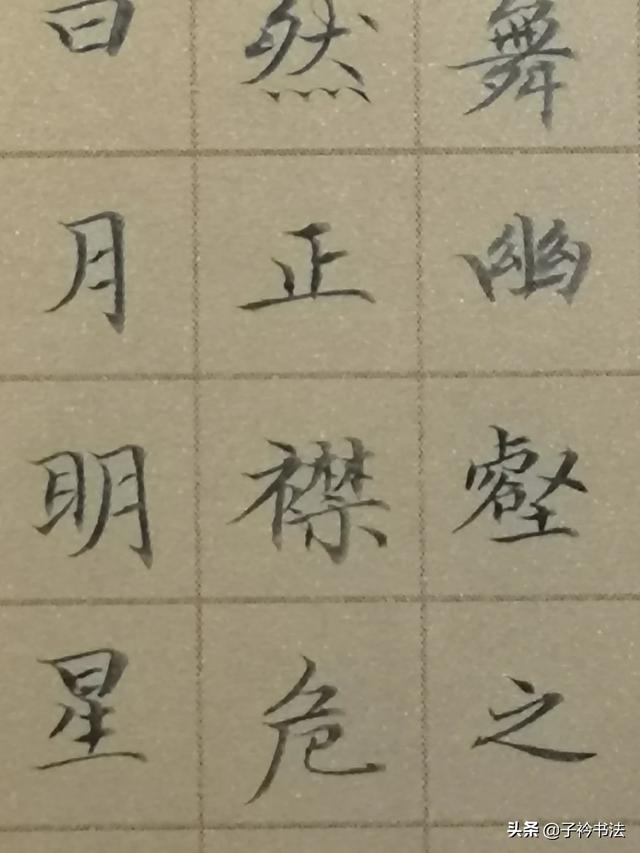 舞幽壑之
然正襟危
曰月明星
头条 @子衿书法